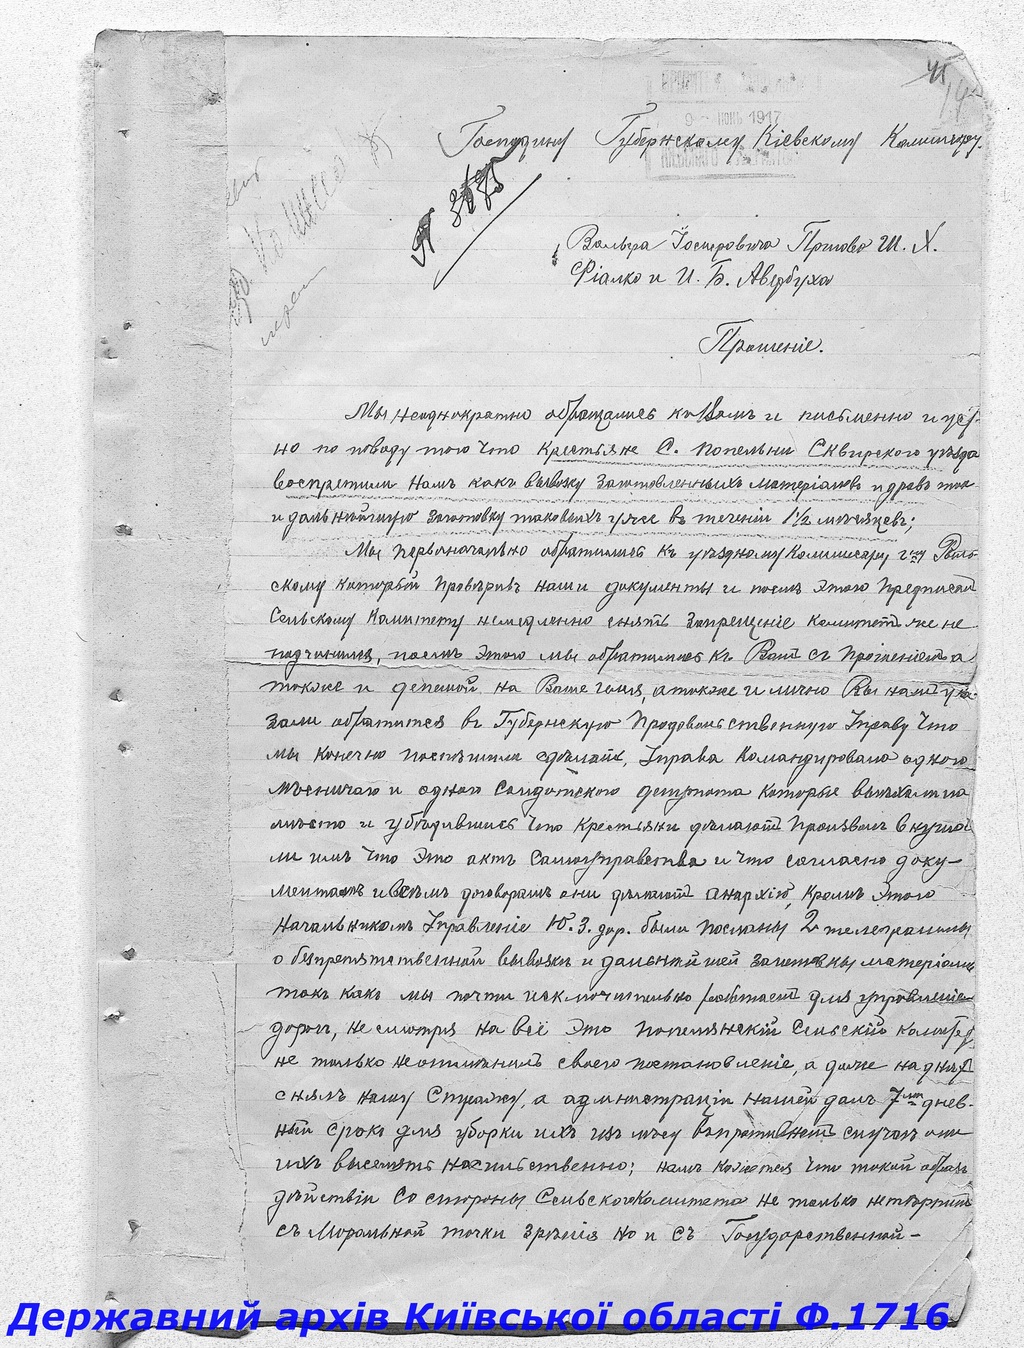 41
9 ІЮНЬ 1917
Господину Губернскому Кіевскому Комиссару.
Вольфа Іосифовича Ш. Х.
Фіалко и И. Б. Авербуха
Прошеніе.
Мы неоднократно обращались къ Вамъ и письменно и уст-
но по поводу того что крестьяне С. Попельни Сквирского уѣзда
воспретили намъ какъ вывозку заготовленныхъ матеріаловъ и дровъ так
и дальнѣйшую заготовку таковыхъ уже въ теченіи 1½ месяцевъ;
Мы первоначально обратились къ уѣздному Комиссару
скому который провѣривъ наши документы и послѣ этого предписал
Сельскому Комитету немедленно снять запрещеніе комитетъ же не
подчинился, послѣ этого мы обратились къ Вамъ съ прошеніемъ а
также и депешой на Ваше имя, а также и лично Вы намъ ука-
зали обратится въ Губернскую Продовольственную Управу что
мы конечно поспѣшили сдѣлать, Управа командировала одного
и одного Солдатского депутата которые выѣхали на
мѣсто и убѣдившись что крестьяни дѣлаютъ произволъ внуша-
ли имъ что это актъ самоуправства и что согласно доку-
ментамъ и всѣмъ договорамъ они дѣлаютъ анархію, кромѣ этого
Начальникомъ Управленіе Ю. З. дор. были посланы 2 телеграммы
о безпрепятственной вывозкѣ и дальнѣйшей заготовки матеріала
такъ какъ мы почти исключительно работаемъ для управленіе
дорогъ, не смотря на всё это Попельнскій Сельскій комитед
не только не отмѣнилъ своего постановленіе, а даже на дняхъ
снялъ нашу Стражу, а администраціи нашей далъ 7ми днев-
ный срокъ для уборки ихъ изъ лѣсу въ противномъ случаѣ они
ихъ выселятъ насильственно; намъ кажется что такой образъ
дѣйствіи со стороны Сельского Комитета не только не терпимъ
съ Моральной точки зрѣнія но и съ Государственной -
Державний архів Київської області Ф.1716